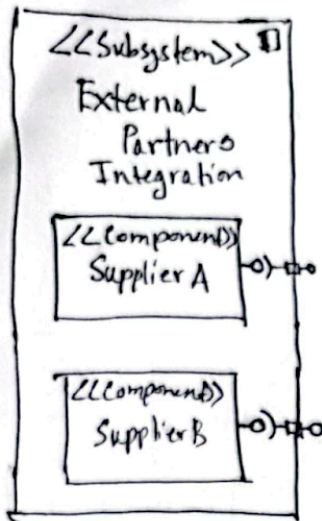 <<Subsystem>>
External
Partners
Integration
<<Component>>
Supplier A
<<Component>>
Supplier B